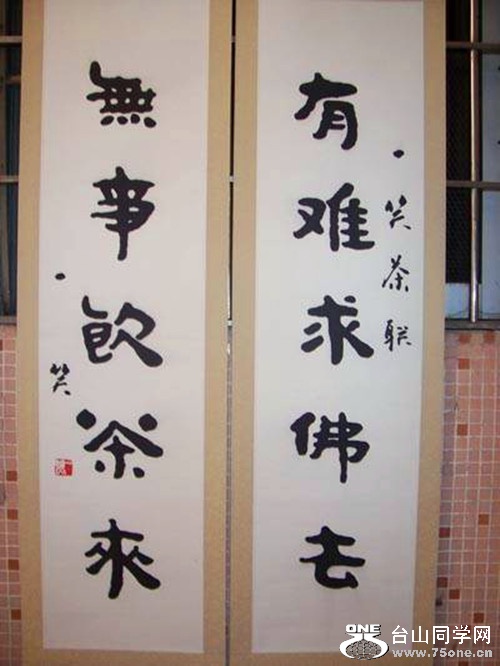 有难求佛去
笑茶联
無事飲茶來
笑
ONE 台山同学网
www.75one.cn